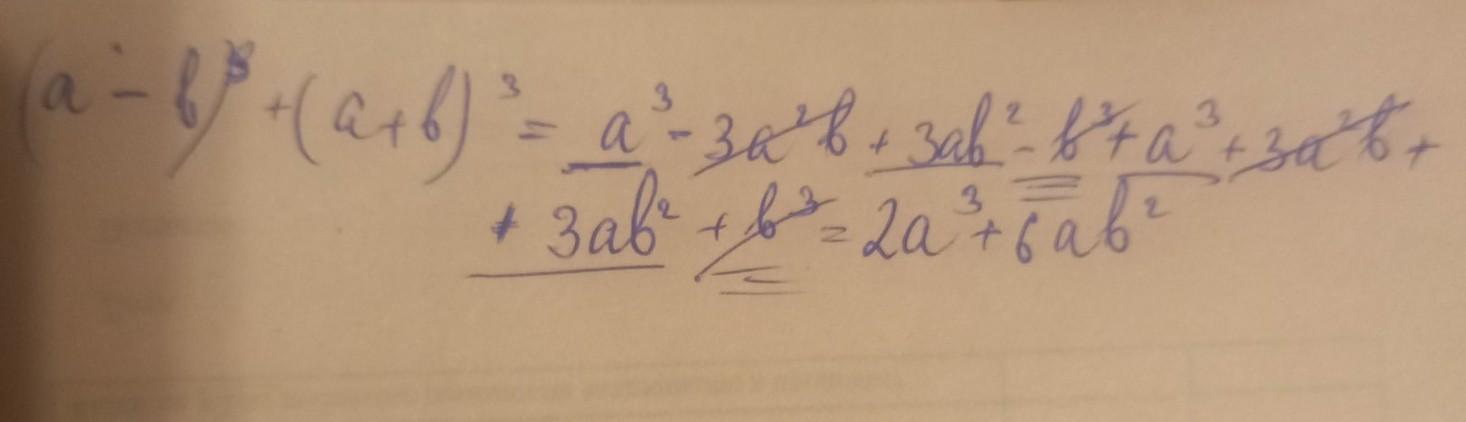 (a - b)³ + (a+b)³ = a³ - 3a²b + 3ab² - b³ + a³ + 3a²b +
+ 3ab² + b³ = 2a³ + 6ab²